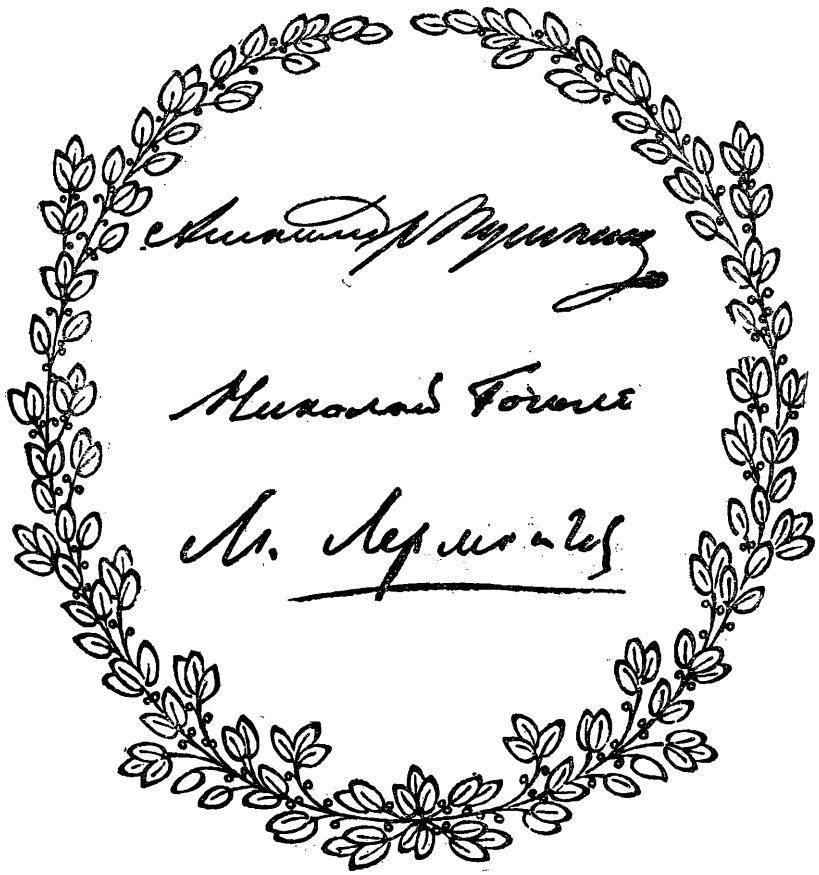 Александр Пушкинъ
Николай Гоголь
М. Лермонтов